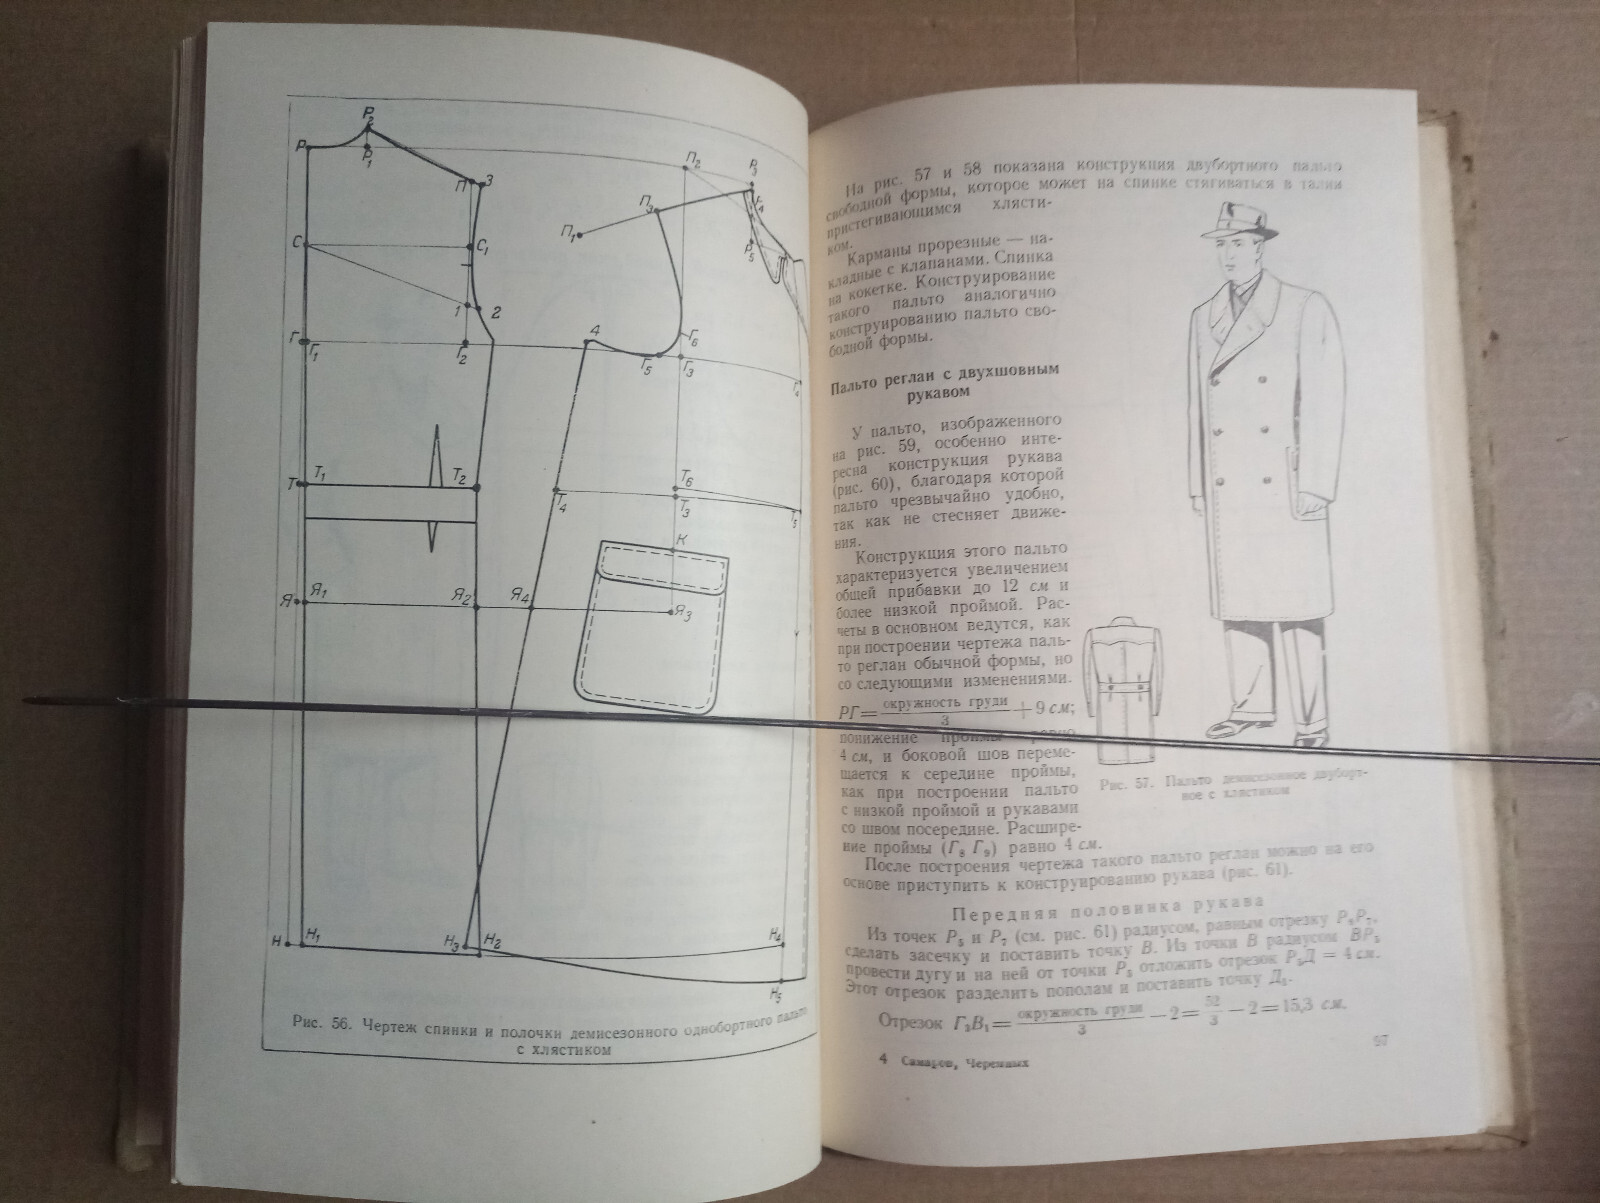 Р₂
Р
Р₁
П 3
С
С₁
1 2
Г
Г₁
Г₂
Т
Т₁
Т₂
Я
Я₁
Я₂
Н
Н₁
Н₃
Н₂
П₂
Р₃
П₃
П₁
Р₄
Р₅
4
Г₅
Г₆
Г₃
Г₄
Т₆
Т₄
Т₃
Т₅
К
Я₄
Я₃
Н₄
Н₅
Рис. 56. Чертеж спинки и полочки демисезонного однобортного пальто
с хлястиком
На рис. 57 и 58 показана конструкция двубортного пальто
свободной формы, которое может на спинке стягиваться в талии
пристегивающимся хлясти-
ком.
Карманы прорезные — на-
кладные с клапанами. Спинка
на кокетке. Конструирование
такого пальто аналогично
конструированию пальто сво-
бодной формы.
Пальто реглан с двухшовным
рукавом
У пальто, изображенного
на рис. 59, особенно инте-
ресна конструкция рукава
(рис. 60), благодаря которой
пальто чрезвычайно удобно,
так как не стесняет движе-
ния.
Конструкция этого пальто
характеризуется увеличением
общей прибавки до 12 см и
более низкой проймой. Рас-
четы в основном ведутся, как
при построении чертежа паль-
то реглан обычной формы, но
со следующими изменениями.
РГ = окружность груди / 3 + 9 см;
понижение проймы равно
4 см, и боковой шов переме-
щается к середине проймы,
как при построении пальто
с низкой проймой и рукавами
со швом посередине. Расшире-
ние проймы (Г₈ Г₉) равно 4 см.
Рис. 57. Пальто демисезонное двуборт-
ное с хлястиком
После построения чертежа такого пальто реглан можно на его
основе приступить к конструированию рукава (рис. 61).
Передняя половинка рукава
Из точек Р₅ и Р₇ (см. рис. 61) радиусом, равным отрезку Р₅Р₇,
сделать засечку и поставить точку В. Из точки В радиусом ВР₅
провести дугу и на ней от точки Р₅ отложить отрезок Р₅Д = 4 см.
Этот отрезок разделить пополам и поставить точку Д₁.
Отрезок Г₃В₁ = окружность груди / 3 — 2 = 52 / 3 — 2 = 15,3 см.
4 Самаров, Черемных
97